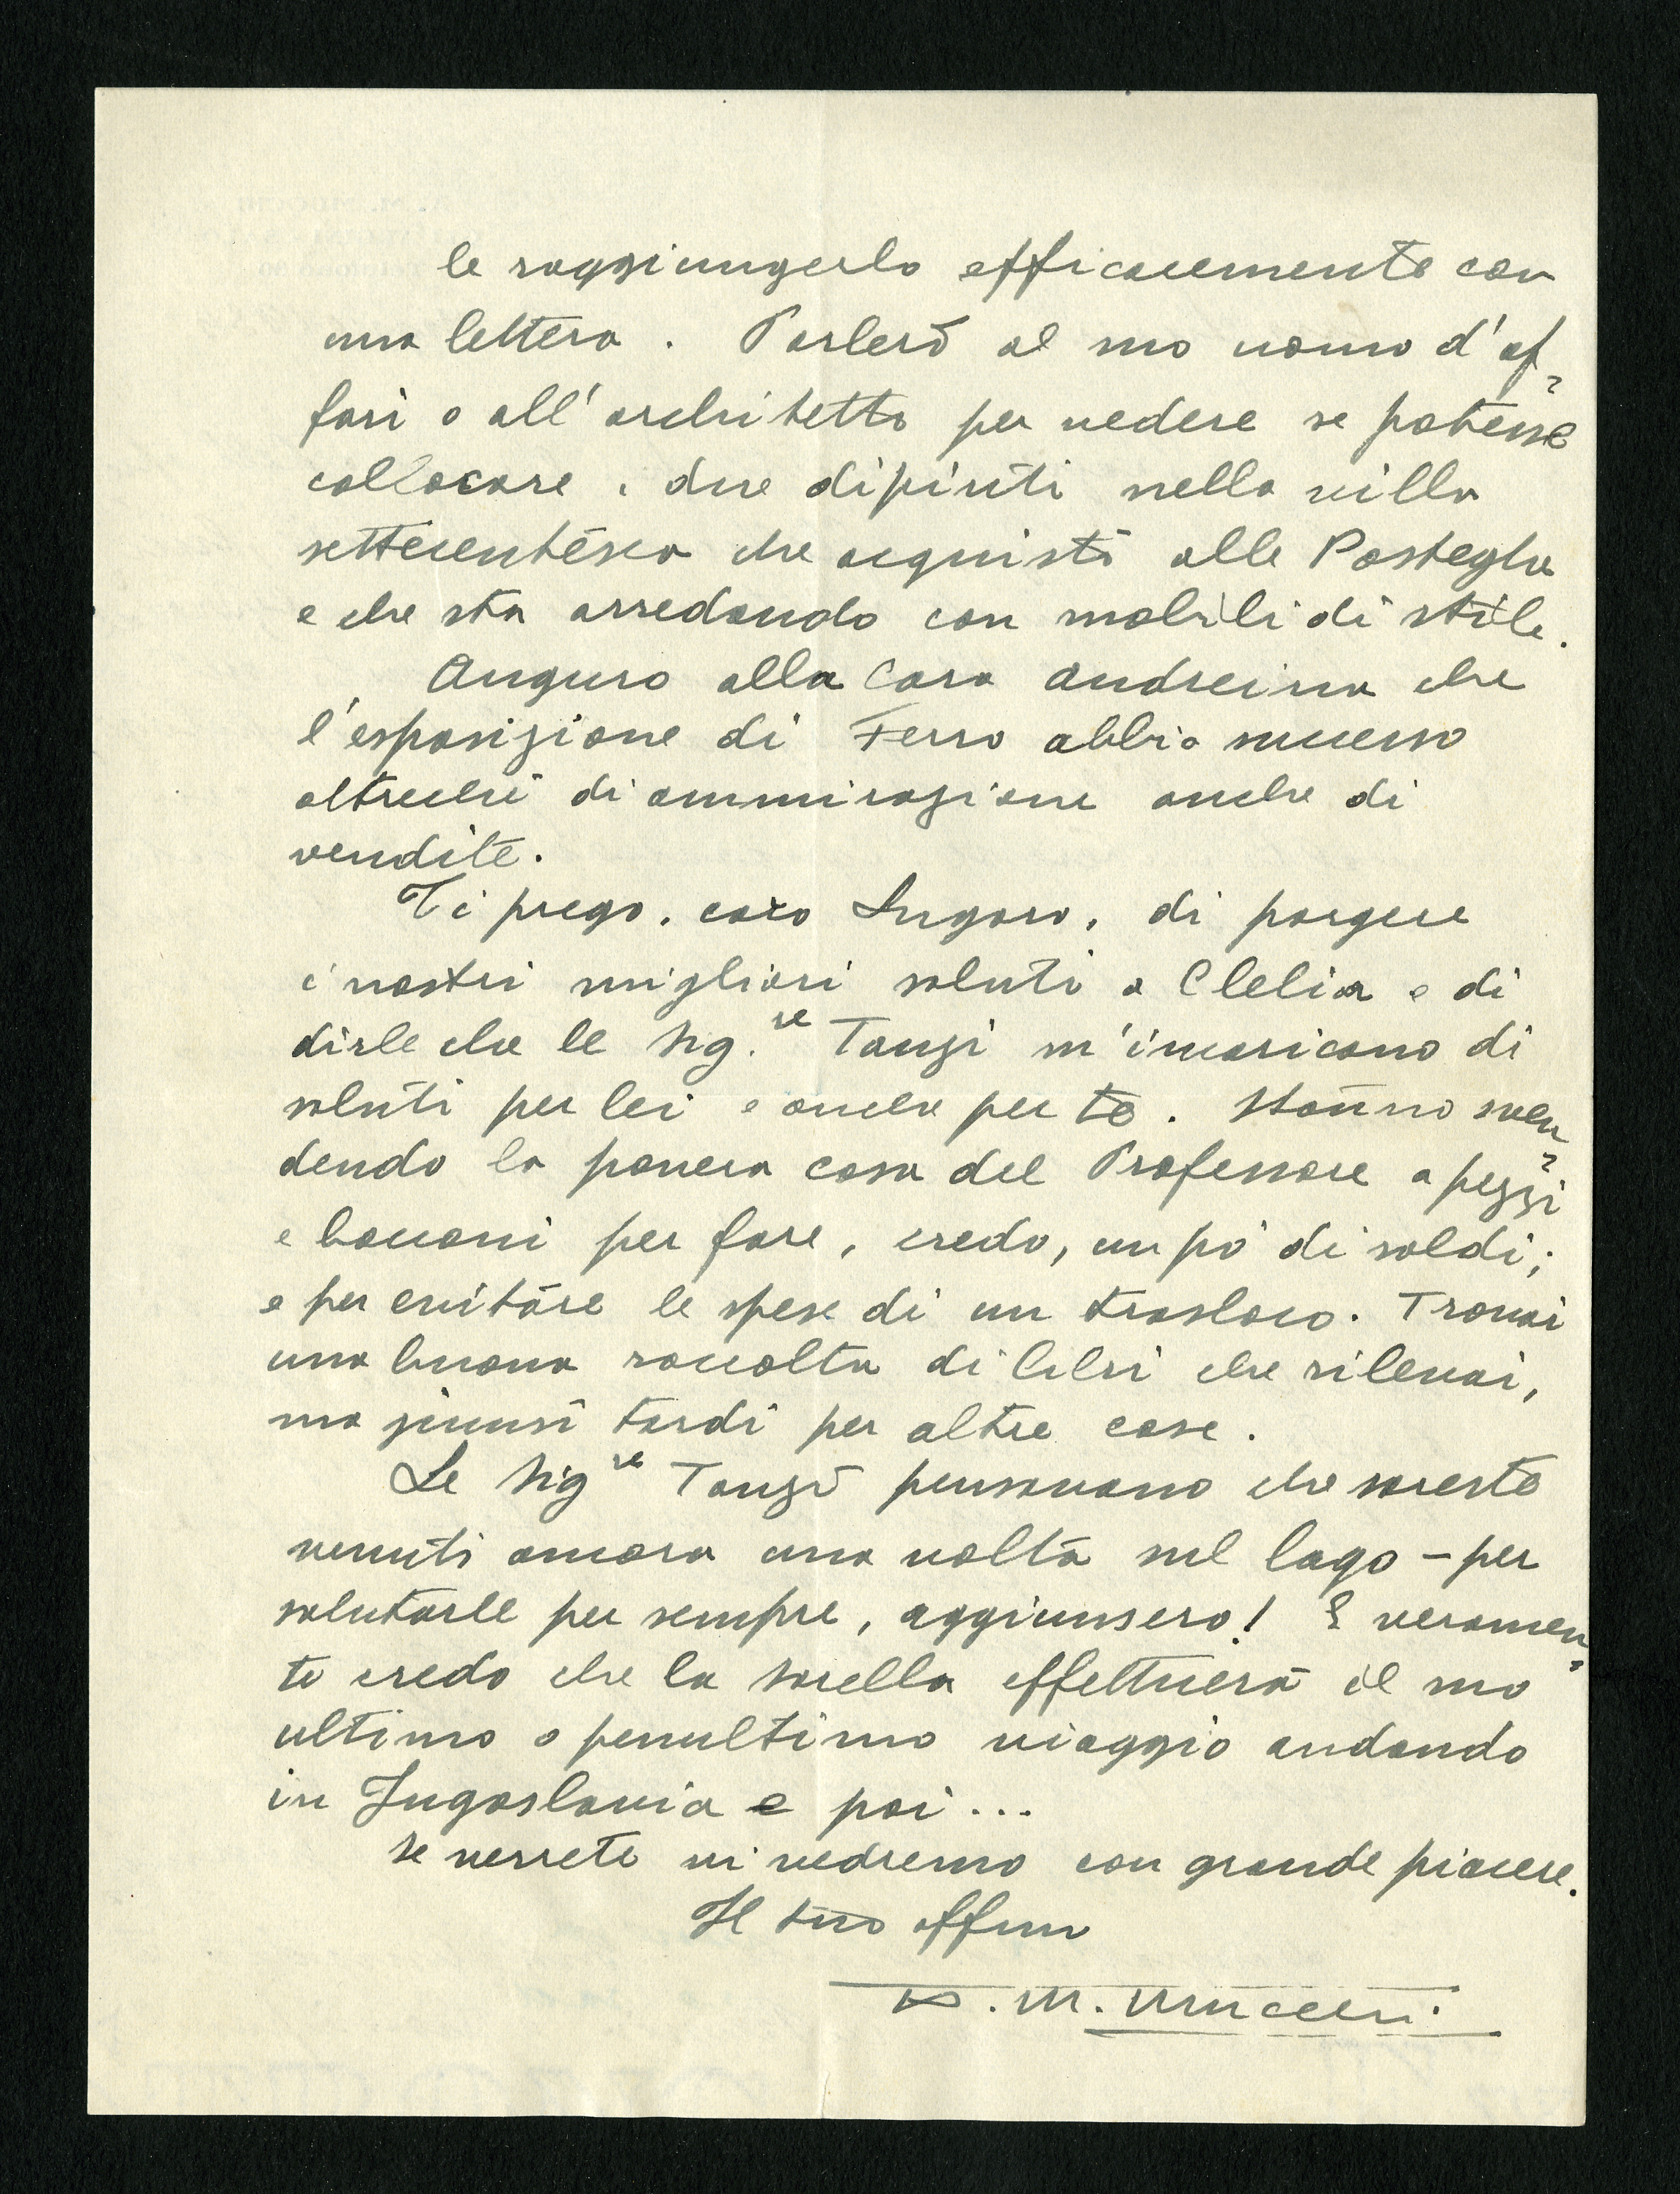 le raggiungerlo efficacemente con
una lettera. Parlerò al suo uomo d'af-
fari o all'architetto per vedere se potesse
collocare i due dipinti nella villa
settecentesca che acquistò alle Pasteghe
e che sta arredando con mobili di stile.
Auguro alla Cara Andreina che
l'esposizione di Ferro abbia successo
oltreché di ammirazione anche di
vendite.
Ti prego, caro Lugaro, di porgere
i nostri migliori saluti a Clelia e di
dirle che le Sig.re Tanzi m'incaricano di
saluti per lei e anche per te. Stanno sven-
dendo la povera casa del Professore a pezzi
e bocconi per fare, credo, un pò di soldi;
e per evitare le spese di un trasloco. Trovai
una buona raccolta di libri che rilevai,
ma giunsi tardi per altre cose.
Le Sigre Tanzi pensavano che sareste
venuti ancora una volta sul lago - per
salutarle per sempre, aggiunsero! E veramen-
te credo che la sorella effettuerà il suo
ultimo o penultimo viaggio andando
in Jugoslavia e poi...
Se verrete vi vedremo con grande piacere.
Il tuo affmo
A. M. Mucchi